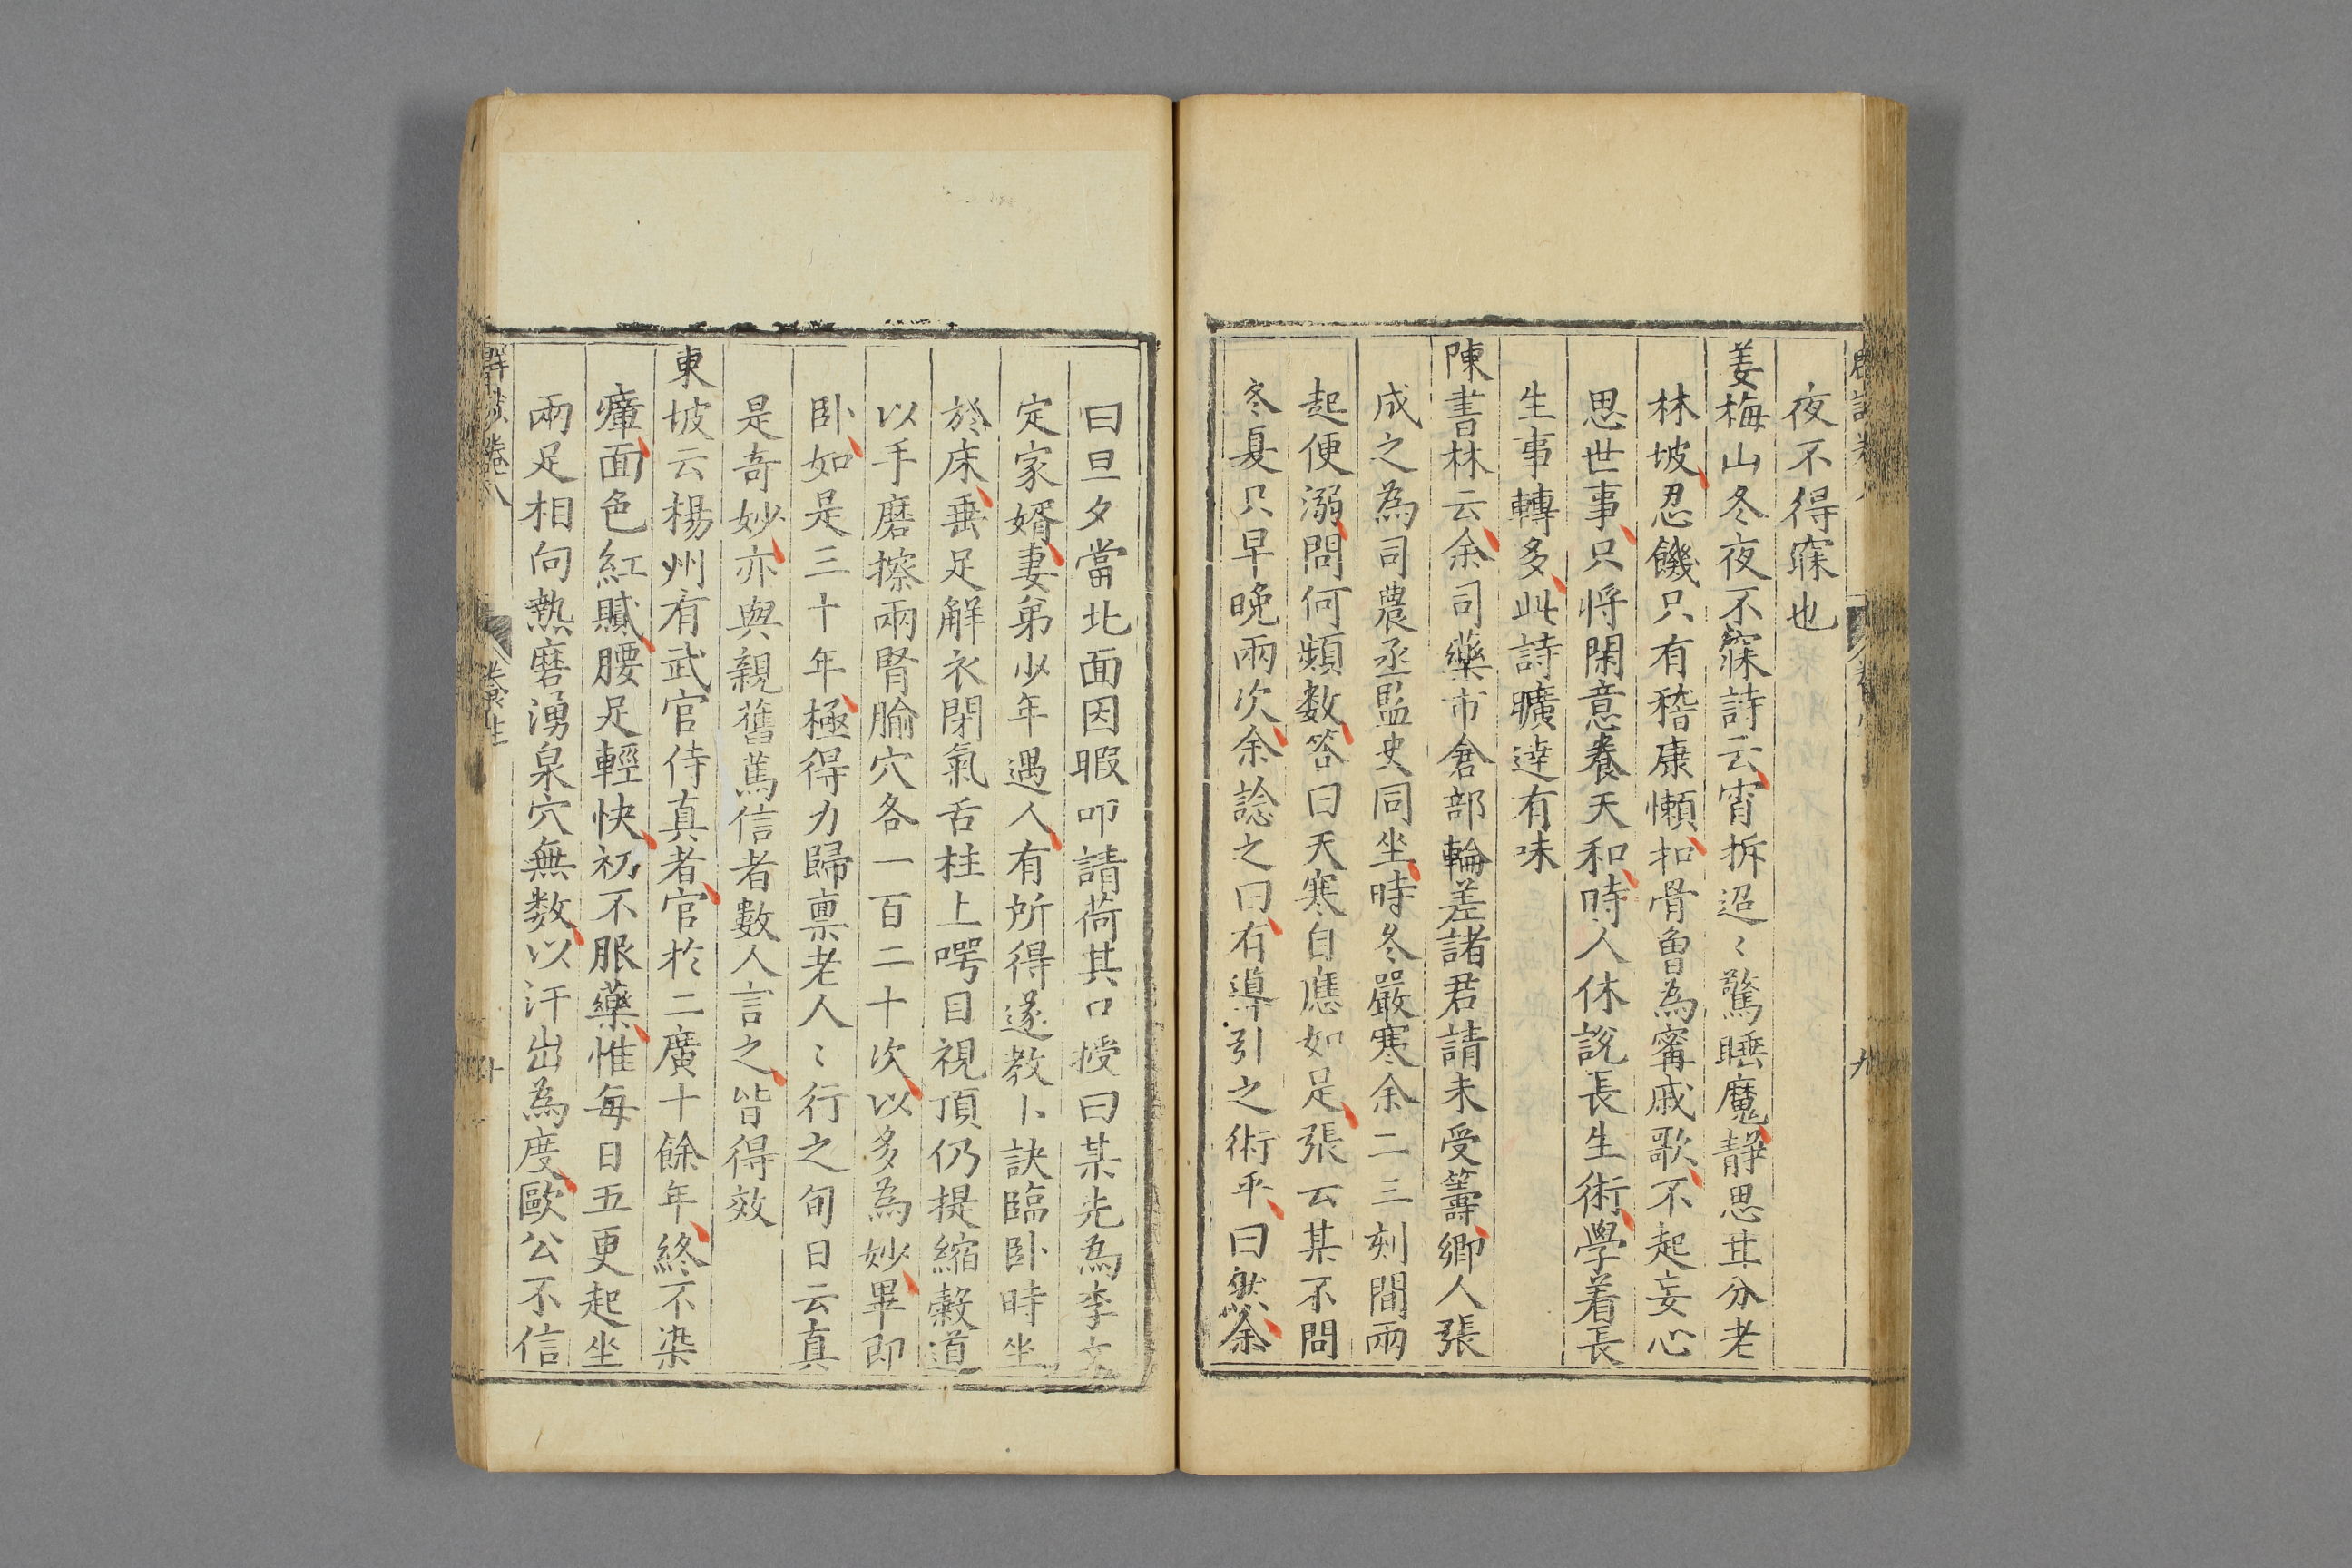 夜不得寐也
姜梅山冬夜不寐詩云宵拆迢〻驚睡魔靜思甘分老
林坡忍饑只有嵇康懶扣骨魯為甯戚歌不起妄心
思世事只將閑意養天和時人休說長生術學着長
生事轉多此詩曠逹有味
陳書林云余司藥市倉部輪差諸君請未受籌鄉人張
成之為司農丞監史同坐時冬嚴寒余二三刻間兩
起便溺問何頻数答曰天寒自應如足張云某不問
冬夏只早晚兩次余諗之曰有導引之術乎曰然余
曰旦夕當北面因暇叩請荷其口授曰某先為李文
定家婿妻弟少年遇人有所得遂教卜訣臨卧時坐
於床垂足解衣閉氣舌柱上咢目視頂仍提縮穀道
以手磨擦兩腎腧穴各一百二十次以多為妙畢即
卧如是三十年極得力歸禀老人〻行之旬日云真
是奇妙亦與親舊篤信者數人言之皆得效
東坡云楊州有武官侍真者官於二廣十餘年終不染
瘴面色紅膩腰足輕快初不服藥惟每日五更起坐
兩足相向熱磨湧泉穴無数以汗出為度歐公不信
卷八
養生
十